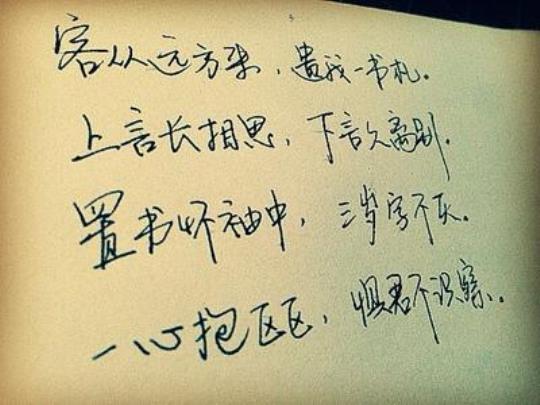 客从远方来，遗我一书札。
上言长相思，下言久离别。
置书怀袖中，三岁字不灭。
一心抱区区，惧君不识察。